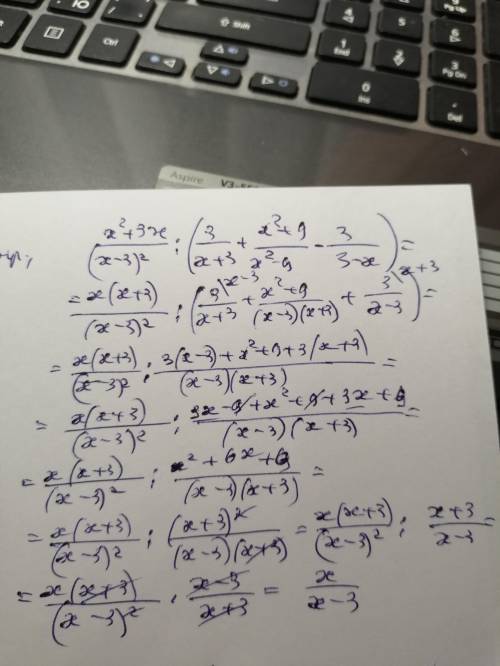 Shift
Ctrl
1 End
2
3 Pg Dn
4
5
6
0 Ins
Del
Aspire
(x²+3x)/(x-3)² : (3/(x+3) + (x²+9)/(x²-9) - 3/(3-x)) =
= x(x+3)/(x-3)² : (3\x-3/(x+3) + (x²+9)/((x-3)(x+3)) + 3\x+3/(x-3)) =
= x(x+3)/(x-3)² : (3(x-3)+x²+9+3(x+3))/((x-3)(x+3)) =
= x(x+3)/(x-3)² : (3x-9+x²+9+3x+9)/((x-3)(x+3)) =
= x(x+3)/(x-3)² : (x²+6x+9)/((x-3)(x+3)) =
= x(x+3)/(x-3)² : (x+3)²/((x-3)(x+3)) = x(x+3)/(x-3)² : (x+3)/(x-3) =
= x(x+3)/(x-3)² · (x-3)/(x+3) = x/(x-3)